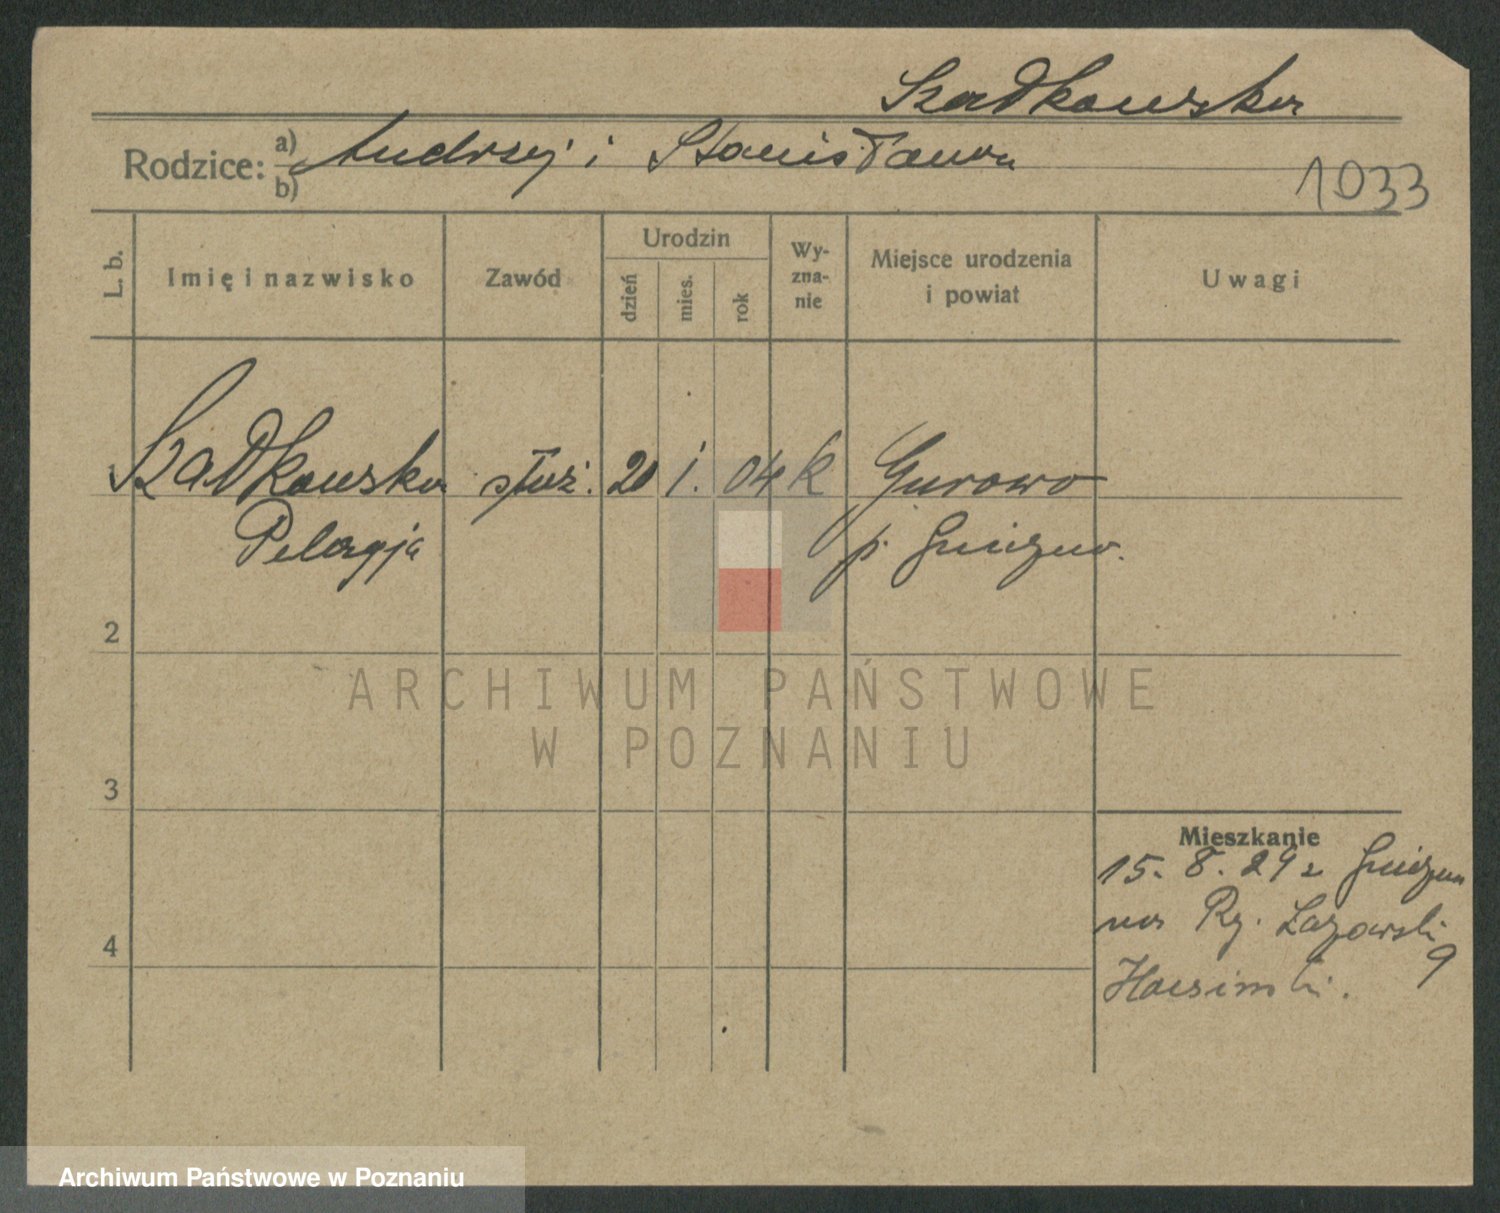 Szadkowska
Rodzice: a) Andrzej i Stanisława
b)
1033
L. b.
Imię i nazwisko
Zawód
Urodzin
dzień
mies.
rok
Wy-
zna-
nie
Miejsce urodzenia
i powiat
Uwagi
1 Szadkowska służ. 20 1. 04 k Gurowo
Pelagja p. Gniezno.
2
3
4
Mieszkanie
15. 8. 29 z Gniezna
na Ry. Łazarski
9
ARCHIWUM PAŃSTWOWE
W POZNANIU
Archiwum Państwowe w Poznaniu